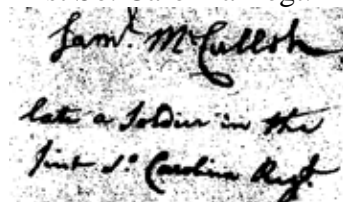 Sam.l McCulloh
late a Soldier in the
first So. Carolina Regt.